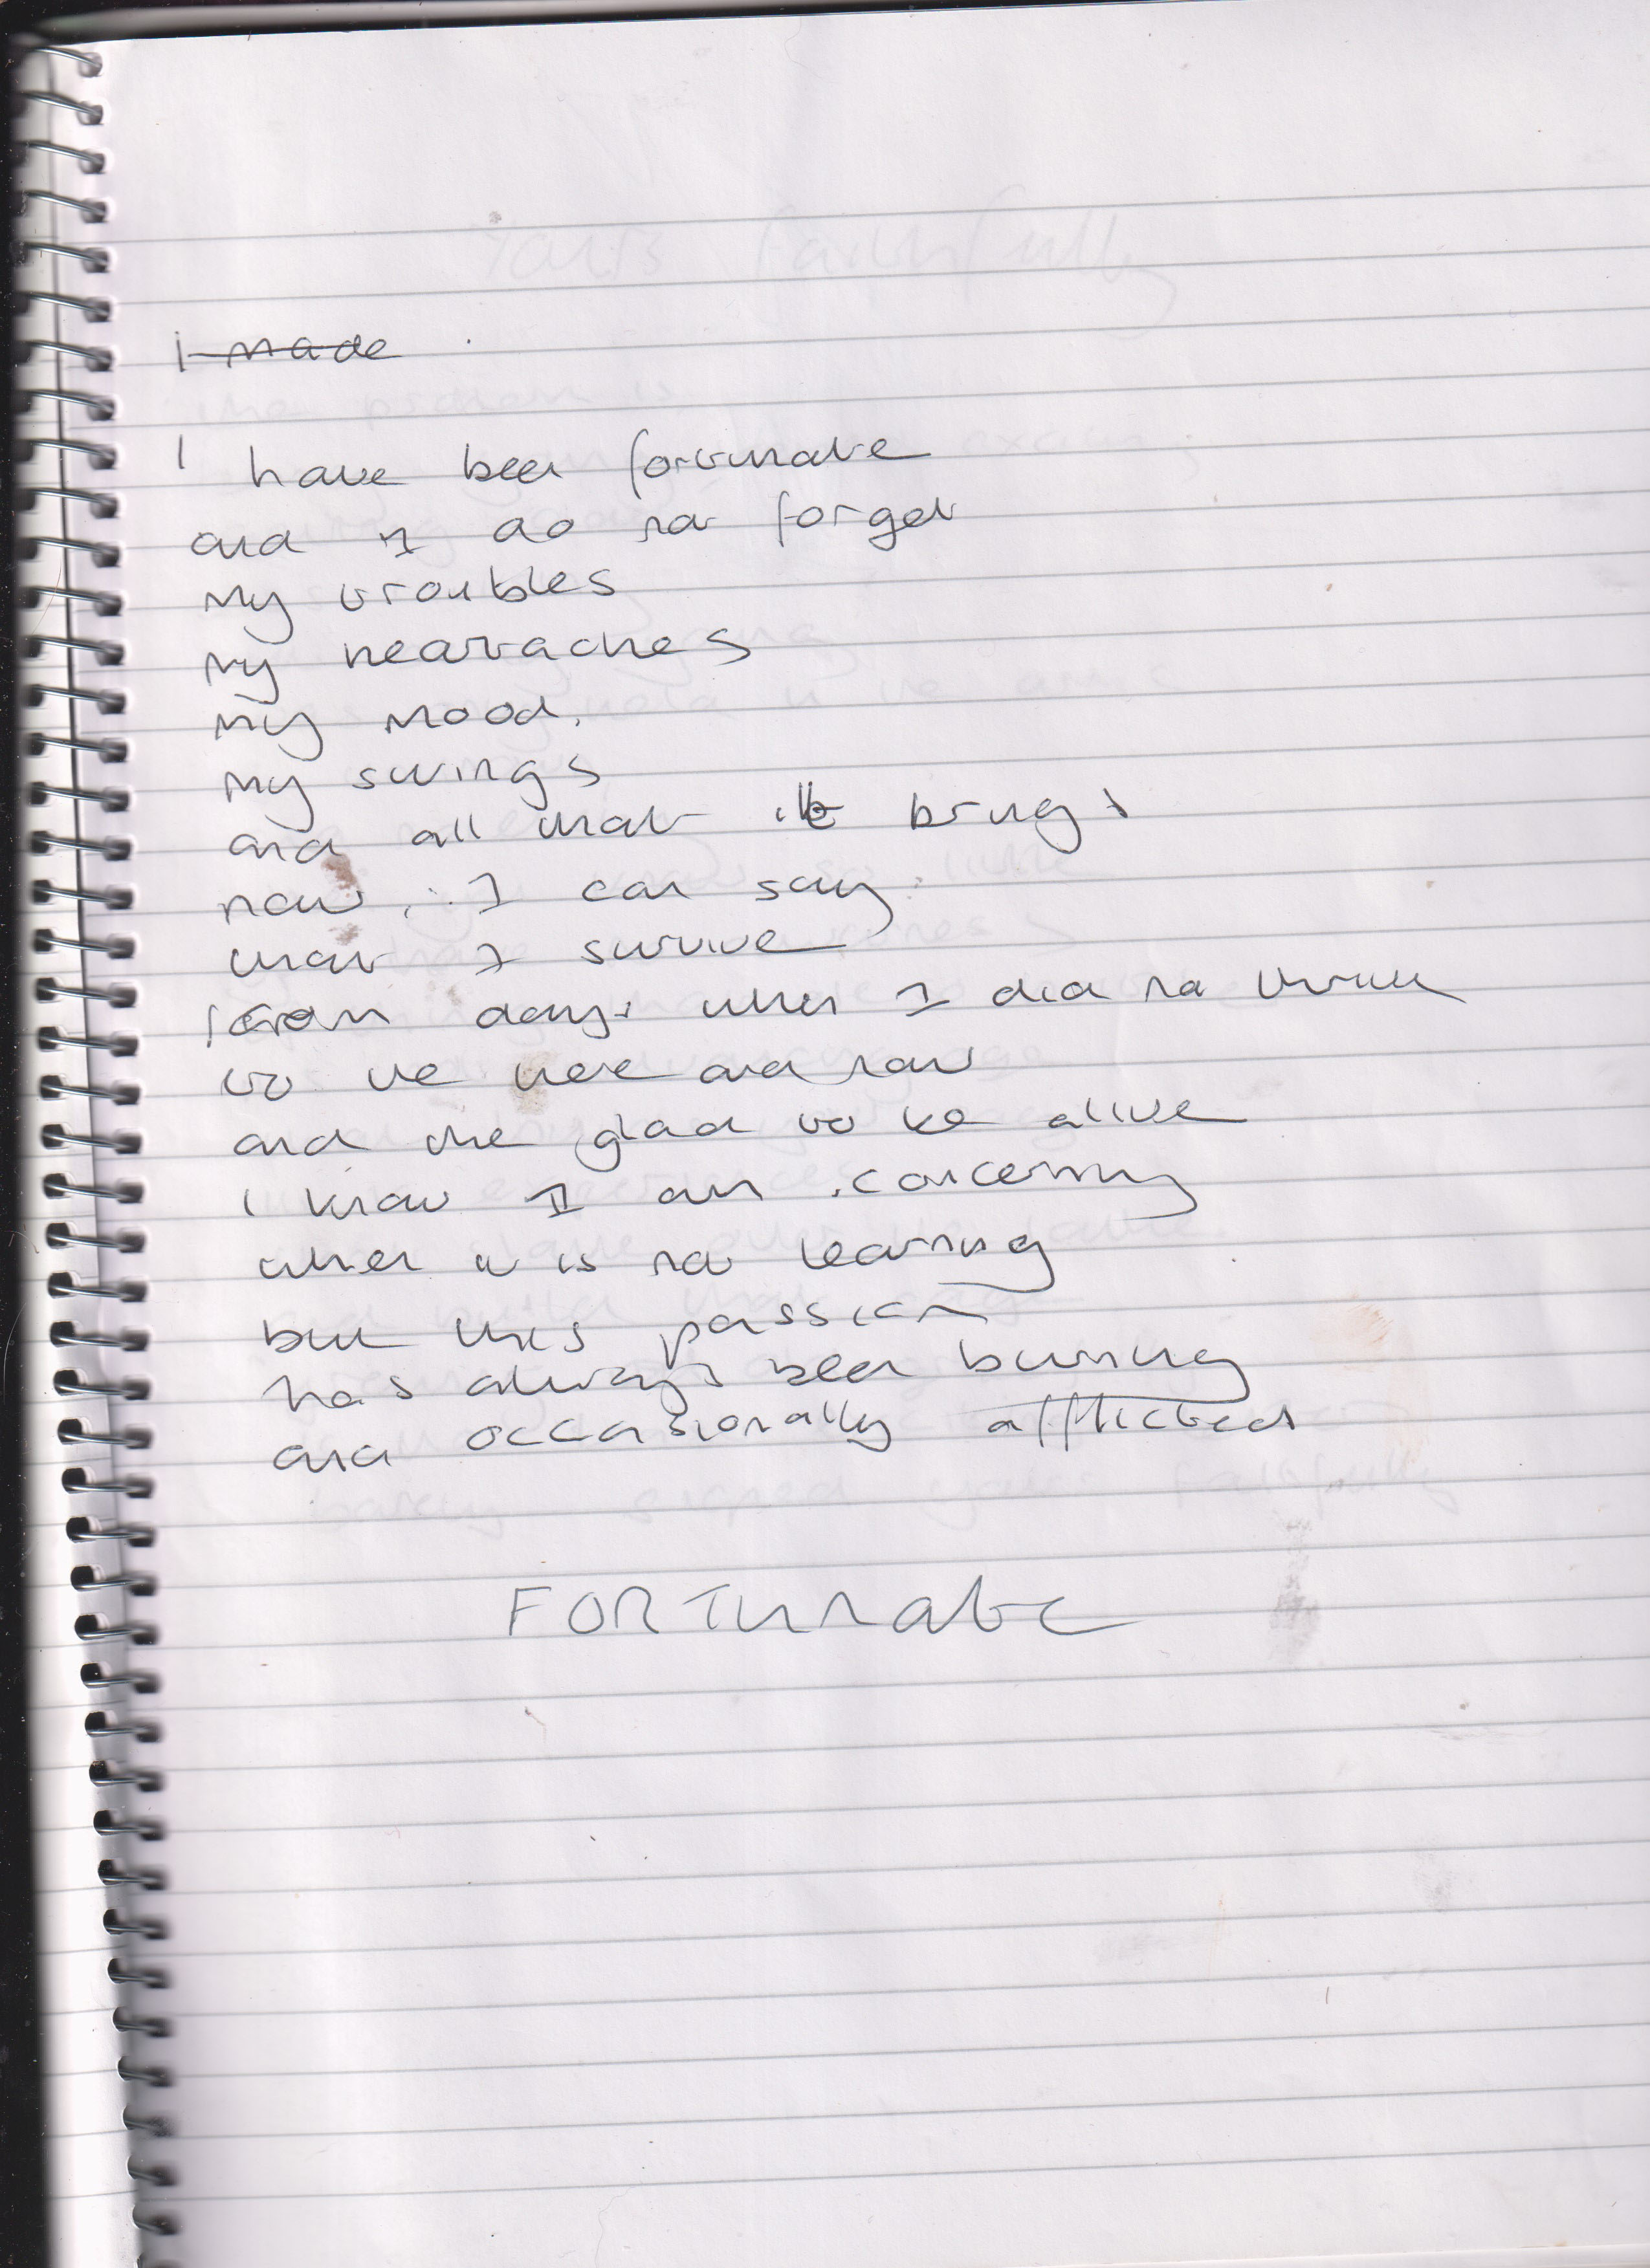 i made
I have been fortunate
and I do not forget
my troubles
my heartaches
my mood.
my swings
and all that it brings
now, I can say
that I survive
from days when I did not think
to be here and now
and the glad to be alive
I know I am concerning
when it is not learning
but this passion
has always been burning
and occasionally afflicted
FORTunate